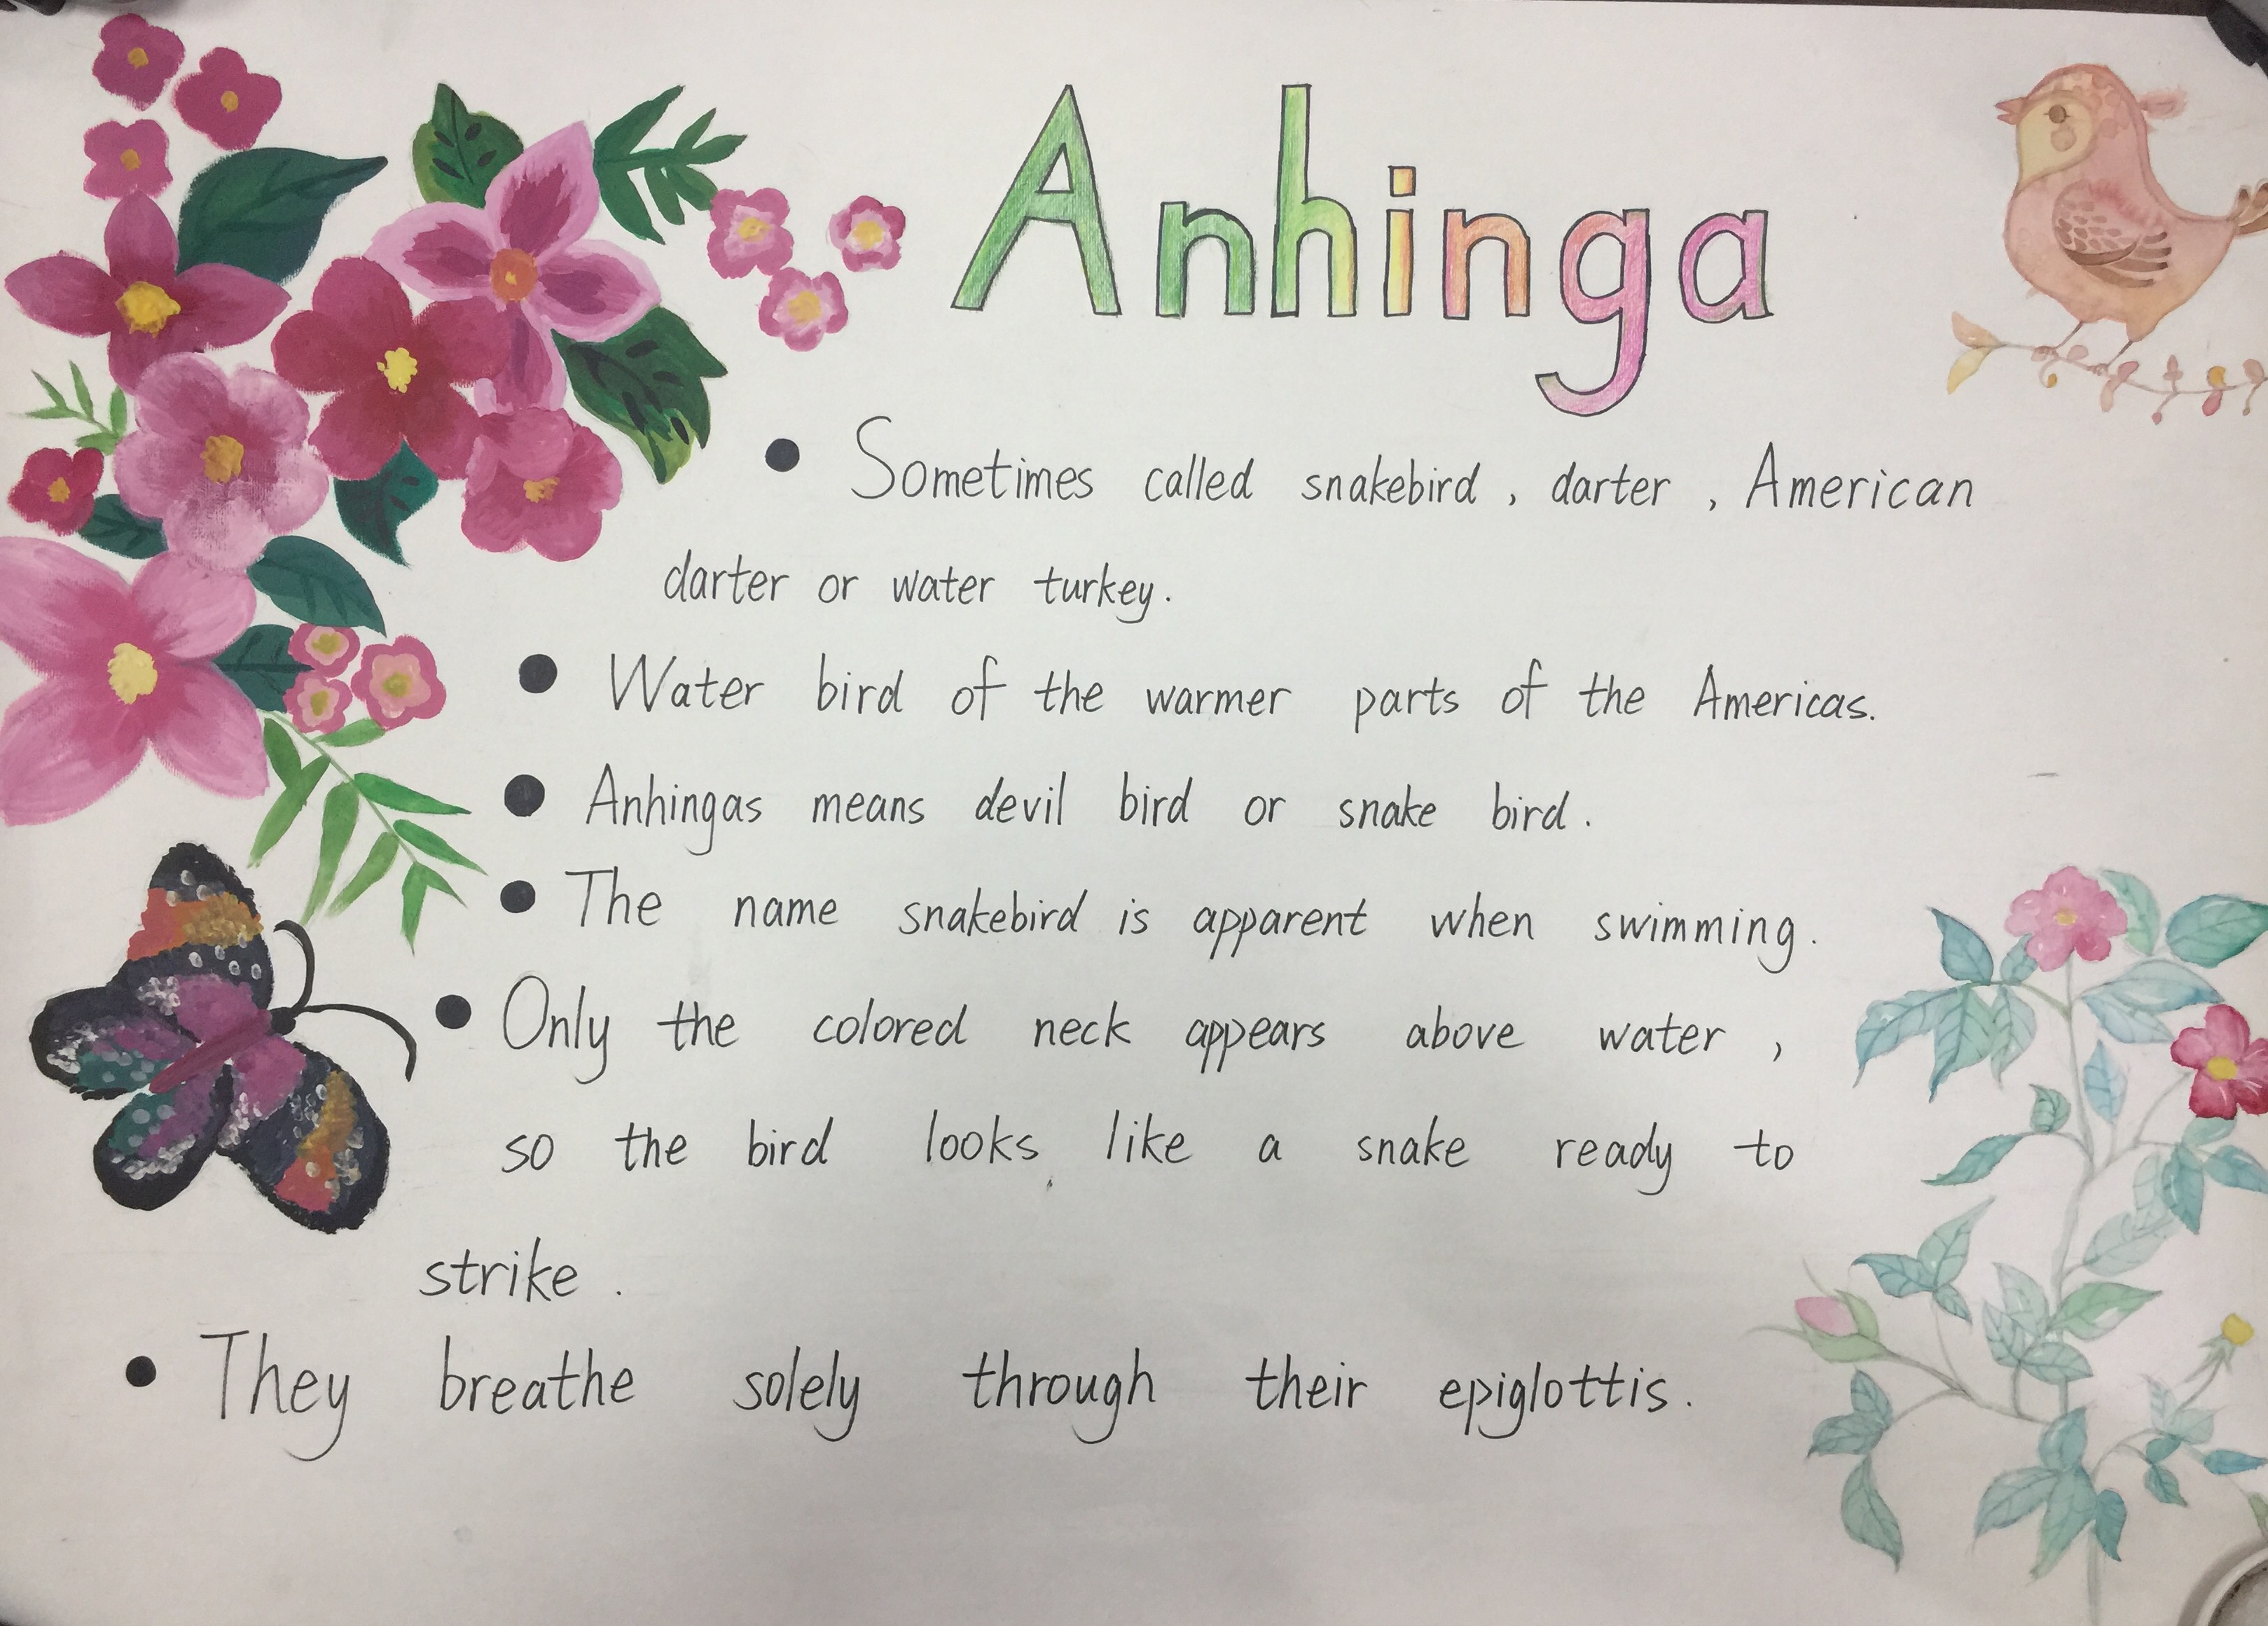 Anhinga
• Sometimes called snakebird, darter, American
darter or water turkey.
• Water bird of the warmer parts of the Americas.
• Anhingas means devil bird or snake bird.
• The name snakebird is apparent when swimming.
• Only the colored neck appears above water,
so the bird looks like a snake ready to
strike.
• They breathe solely through their epiglottis.